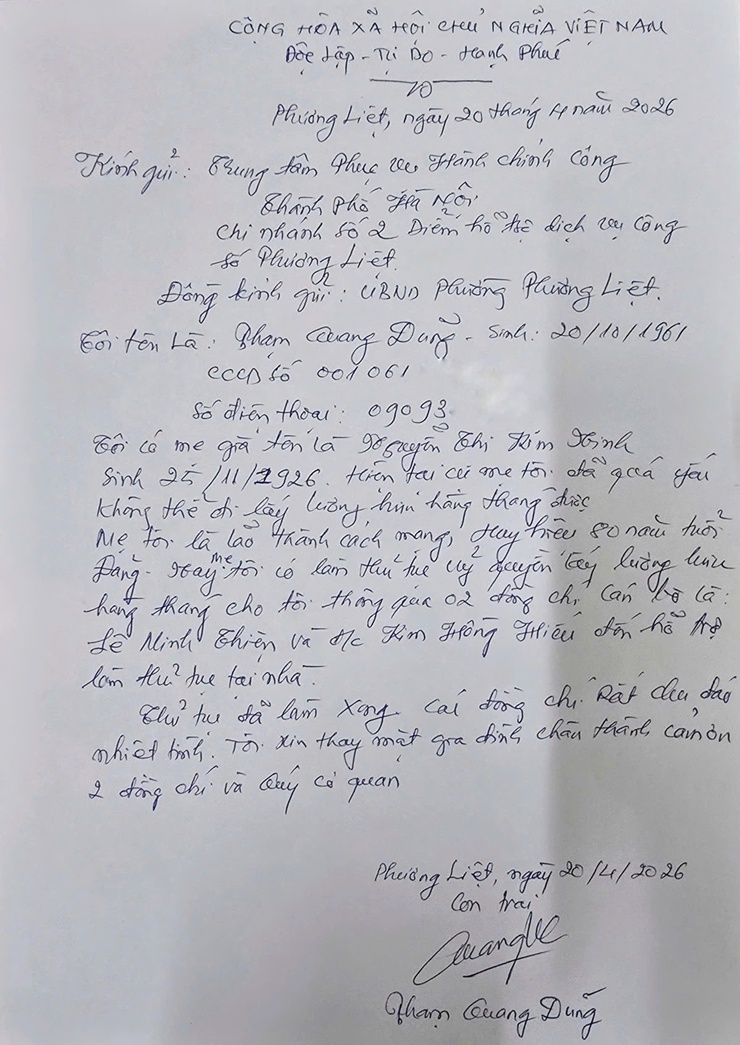 CỘNG HÒA XÃ HỘI CHỦ NGHĨA VIỆT NAM
Độc lập - Tự Do - Hạnh Phúc
Phương Liệt, ngày 20 tháng 4 năm 2026
Kính gửi: Trung tâm Phục vụ Hành chính Công
Thành Phố Hà Nội
Chi nhánh số 2 Điểm hỗ trợ dịch vụ Công
số Phương Liệt.
Đồng kính gửi: UBND Phường Phương Liệt.
Tôi tên là: Phạm Quang Dũng - Sinh: 20/10/1961
CCCD số 001061
Số điện thoại: 09093
Tôi có mẹ già tên là Nguyễn Thị Kim Ninh
Sinh 25/11/1926. Hiện tại cụ mẹ tôi đã quá yếu
không thể đi lấy lương hưu hàng tháng được
Mẹ tôi là lão thành cách mạng, Huy hiệu 80 năm tuổi
Đảng. Nay mẹ tôi có làm thủ tục uỷ quyền lấy lương hưu
hàng tháng cho tôi thông qua 02 đồng chí cán bộ là:
Lê Minh Thiện và đ/c Kim Hồng Hiếu đến hỗ trợ
làm thủ tục tại nhà.
Thủ tục đã làm xong. Các đồng chí Rất chu đáo
nhiệt tình. Tôi xin thay mặt gia đình chân thành cảm ơn
2 đồng chí và Quý cơ quan
Phương Liệt, ngày 20/4/2026
Con trai
Phạm Quang Dũng